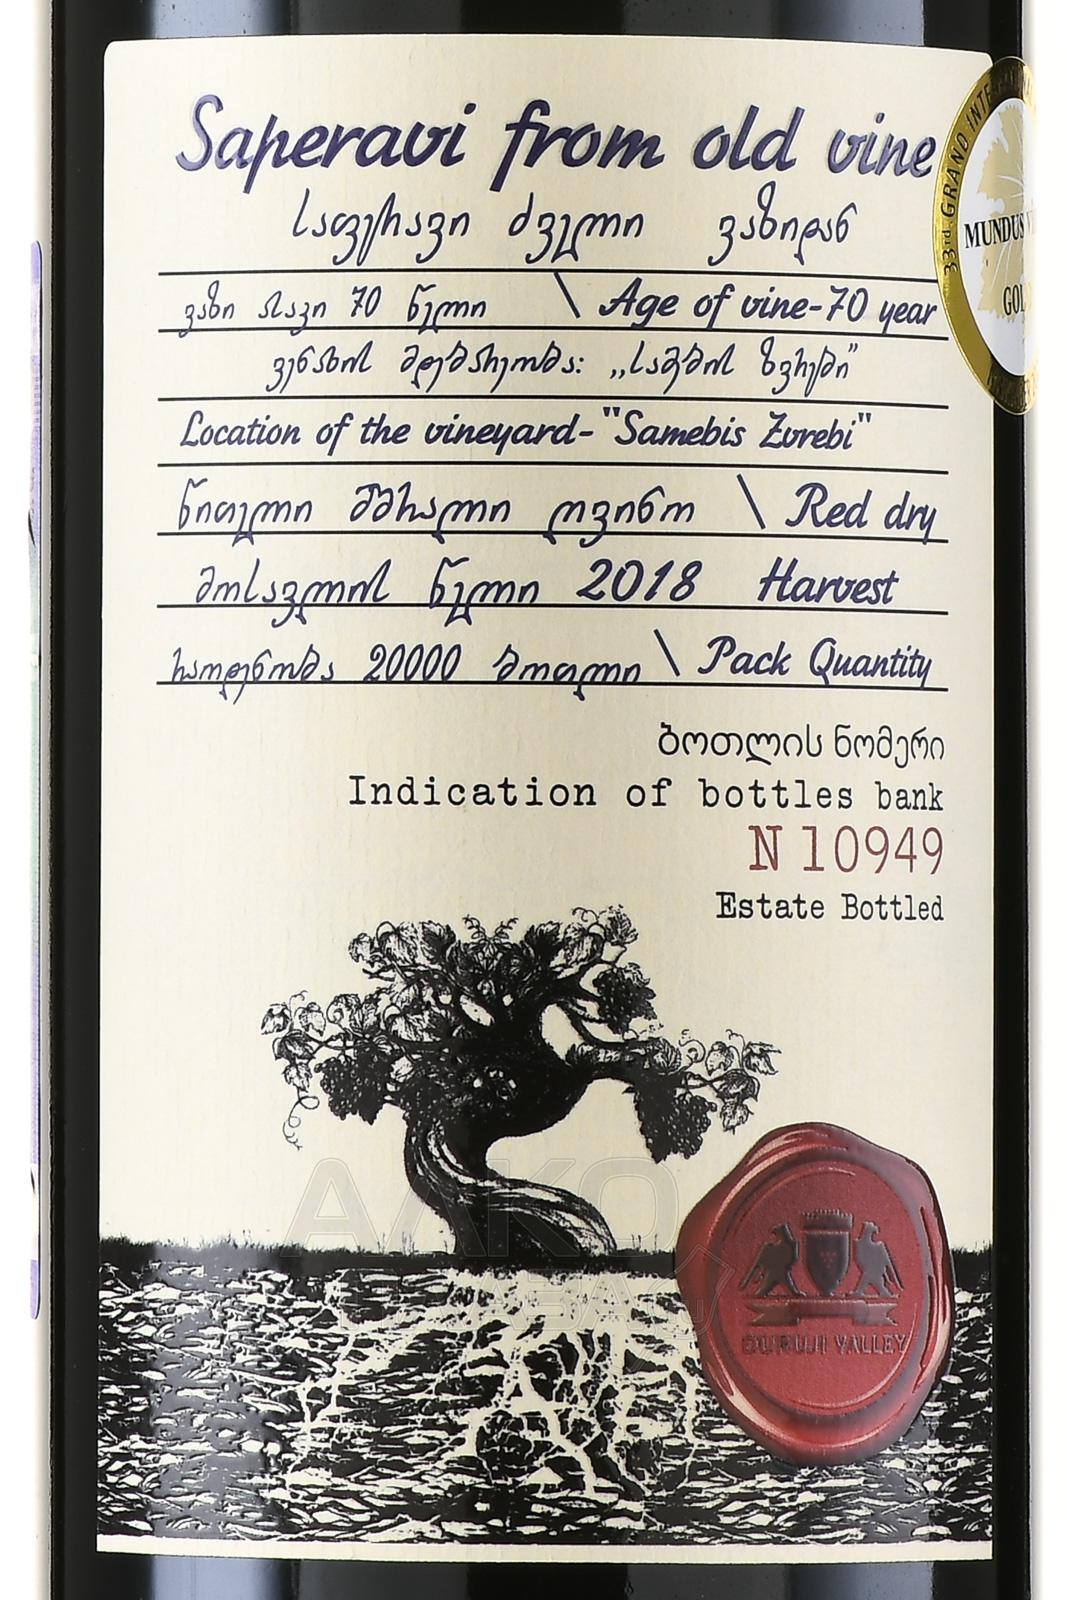 Saperavi from old vine
საფერავი ძველი ვაზიდან
ვაზი ასაკი 70 წელი \ Age of vine-70 year
ვენახის მდებარეობა: „სამების ზვრები"
Location of the vineyard-"Samebis Zvrebi"
წითელი მშრალი ღვინო \ Red dry
მოსავლის წელი 2018 Harvest
რაოდენობა 20000 ბოთლი \ Pack Quantity
ბოთლის ნომერი
Indication of bottles bank
N 10949
Estate Bottled
33rd GRAND INTE
MUNDUS
GOL
DURUJI VALLEY